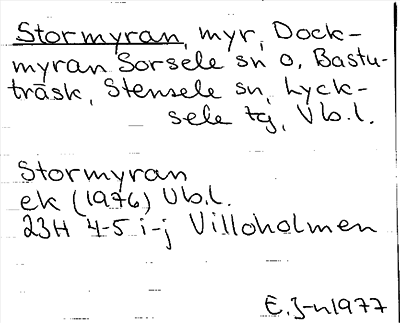 Stormyran, myr, Dock-
myran Sorsele sn o, Bastu-
träsk, Stensele sn, Lyck-
sele tg, Vb.l.
Stormyran
ek (1976) Vb.l.
23H 4-5 i-j Villoholmen
E.J-n 1977